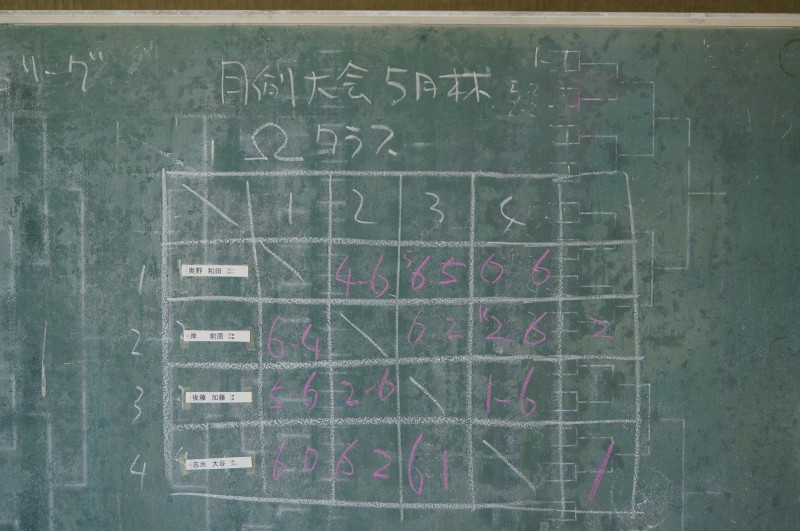 リーグ
月例大会 5月杯
Ω クラス
1 2 3 4
1 奥野 和田 4-6 6 5 0 6
2 岸 前原 6-4 6-2 2-6 2
3 後藤 加藤 5 6 2-6 1-6
4 志水 大谷 6 0 6 2 6-1 1